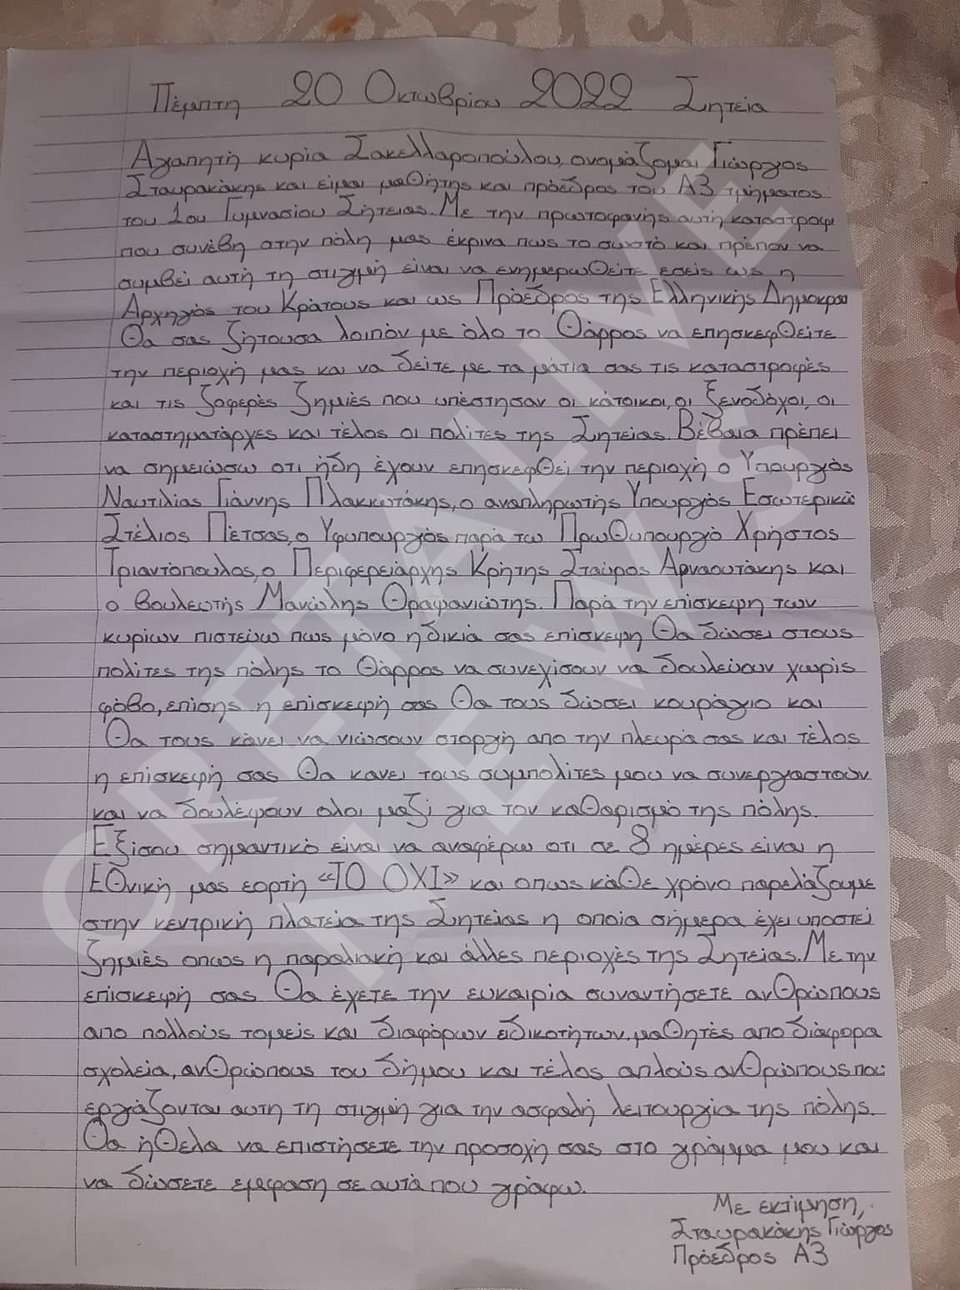 Πέμπτη 20 Οκτωβρίου 2022 Σητεία
Αγαπητή κυρία Σακελλαροπούλου, ονομάζομαι Γιώργος
Σταυρακάκης και είμαι μαθητης και πρόεδρος του Α3 τμήματος
του 1ου Γυμνασίου Σητειας. Με την πρωτοφανής αυτή καταστροφη
που συνέβη στην πόλη μας έκρινα πως το σωστό και πρέπον να
συμβεί αυτή τη στιγμή είναι να ενημερωθείτε εσείς ως η
Αρχηγός του Κράτους και ως Πρόεδρος της Ελληνικής Δημοκρα
Θα σας ζητουσα λοιπόν με όλο το Θάρρος να επησκεφθείτε
την περιοχή μας και να δείτε με τα μάτια σας τις καταστροφές
και τις ζοφερές ζημιές που υπέστησαν οι κάτοικοι, οι ξενοδόχοι, οι
καταστηματάρχες και τέλος οι πολίτες της Σητείας. Βέβαια πρέπει
να σημειώσω οτι ήδη έχουν επησκεφθεί την περιοχή ο Υπουργός
Ναυτιλίας Γιάννης Πλακιωτάκης, ο αναπληρωτής Υπουργός Εσωτερικώ
Στέλιος Πέτσας, ο Υφυπουργός παρά τω Πρωθυπουργό Χρήστος
Τριαντόπουλος, ο Περιφερειάρχης Κρήτης Σταύρος Αρναουτάκης και
ο βουλευτής Μανώλης Θραψανιώτης. Παρά την επίσκεψη των
κυρίων πιστεύω πως μόνο η δικιά σας επίσκεψη Θα δώσει στους
πολίτες της πόλης το Θάρρος να συνεχίσουν να δουλεύουν χωρίς
φόβο, επίσης η επίσκεψή σας Θα τους δώσει κουράγιο και
Θα τους κάνει να νιώσουν στοργή απο την πλευρά σας και τέλος
η επίσκεψή σας Θα κανει τους συμπολίτες μου να συνεργαστούν
και να δουλέψουν ολοι μαζί για τον καθαρισμό της πόλης.
Εξίσου σημαντικό είναι να αναφέρω οτι σε 8 ημέρες είναι η
Εθνική μας εορτή «ΤΟ ΟΧΙ» και οπως κάθε χρόνο παρελάζουμε
στην κεντρική πλατεία της Σητείας η οποία σήμερα έχει υποστεί
ζημιές οπως η παραλιακή και άλλες περιοχές της Σητείας. Με την
επίσκεψή σας Θα έχετε την ευκαιρία συναντήσετε ανθρώπους
απο πολλούς τομείς και διαφόρων ειδικοτήτων, μαθητές απο διάφορα
σχολεία, ανθρώπους του δήμου και τέλος απλούς ανθρώπους που
εργάζονται αυτη τη στιγμή για την ασφαλή λειτουργία της πόλης.
Θα ήθελα να επιστήσετε την προσοχή σας στο γράμμα μου και
να δώσετε έμφαση σε αυτά που γράφω.
Με εκτίμηση,
Σταυρακάκης Γιώργος
Πρόεδρος Α3
CRETALIVE
NEWS